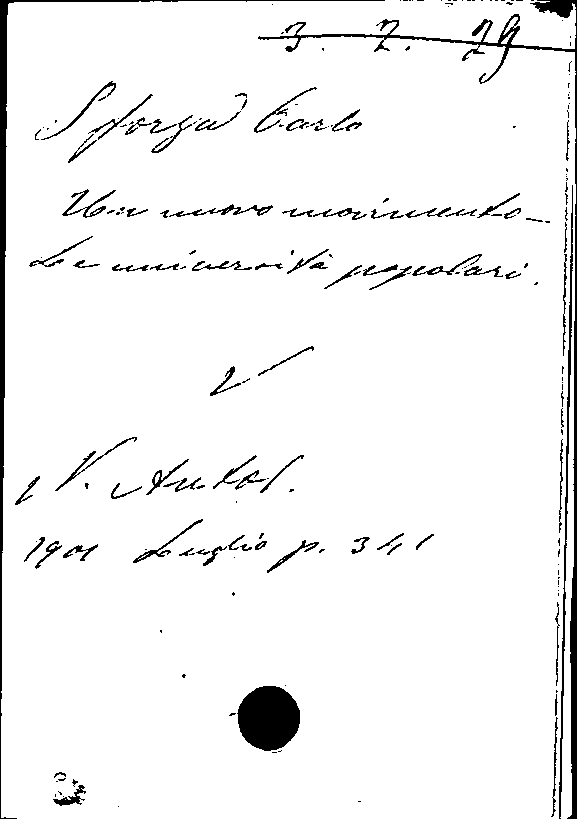 3. 2. 29
Sforza Carlo
Un nuovo movimento -
Le università popolari.
N. Antol.
1901 Luglio p. 341